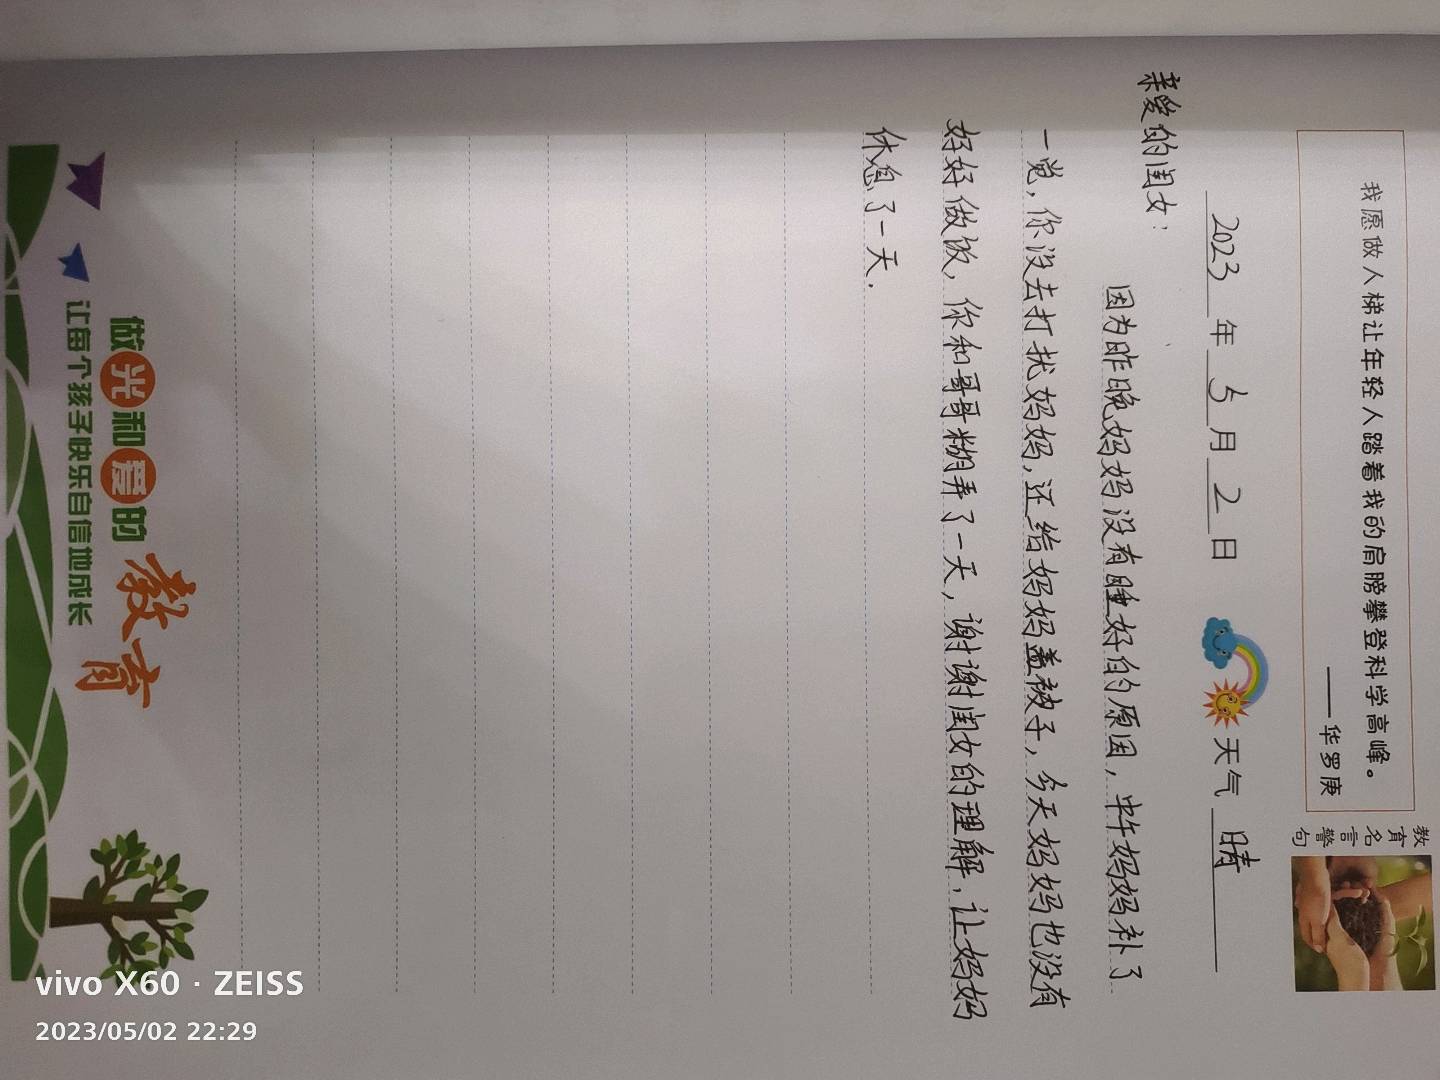 教育名言警句
我愿做人梯让年轻人踏着我的肩膀攀登科学高峰。
——华罗庚
2023年5月2日 天气 晴
亲爱的闺女：
因为昨晚妈妈没有睡好的原因，中午妈妈补了
一觉，你没去打扰妈妈，还给妈妈盖被子，今天妈妈也没有
好好做饭，你和哥哥糊弄了一天，谢谢闺女的理解，让妈妈
休息了一天.
做光和爱的教育
让每个孩子快乐自信地成长
vivo X60 · ZEISS
2023/05/02 22:29